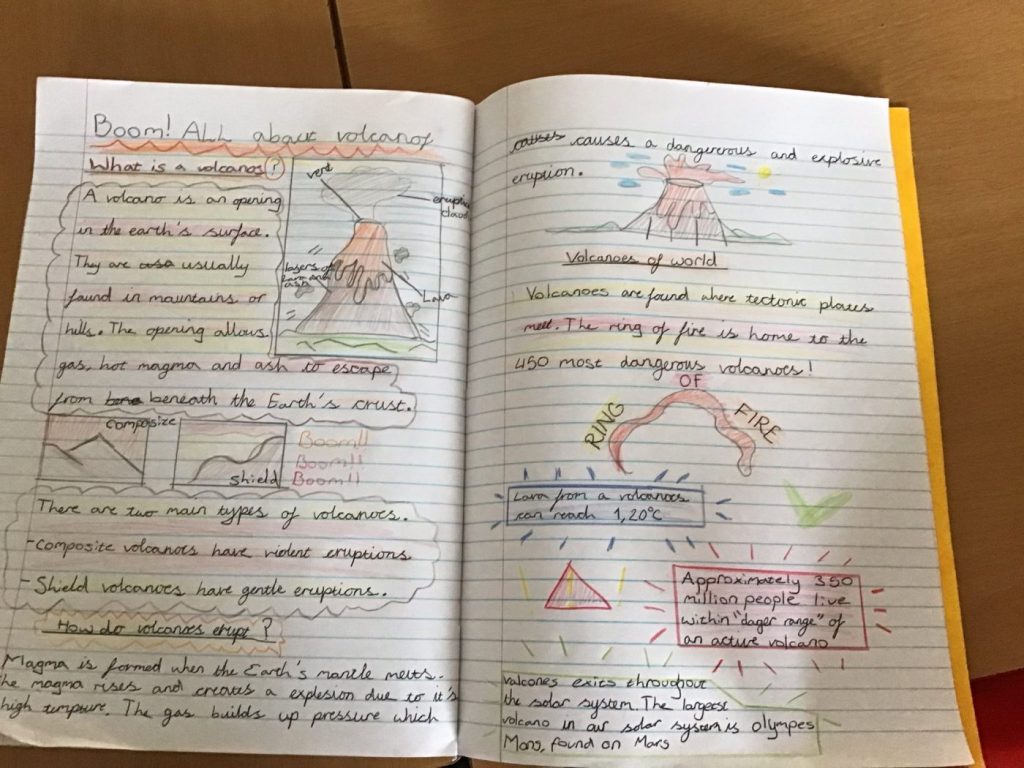 Boom! ALL about volcanos
What is a volcanos?
vent
eruption
cloud
layers of
lava and
ash
Lava
A volcano is an opening
in the earth's surface.
They are usually
found in mountains or
hills. The opening allows
gas, hot magma and ash to escape
from beneath the Earth's crust.
composize
shield
Boom!!
Boom!!
Boom!!
There are two main types of volcanoes.
-Composite volcanoes have violent eruptions
- Shield volcanoes have gentle eruptions.
How do volcanoes erupt?
Magma is formed when the Earth's mantle melts.
the magma rises and creates a explesion due to it's
high tempture. The gas builds up pressure which
causes causes a dangererous and explosive
eruption.
Volcanoes of world
Volcanoes are found where tectonic plates
meet. The ring of fire is home to the
450 most dangerous volcanoes!
RING OF FIRE
Lava from a volcanoes
can reach 1,20°C
Approximately 350
million people live
within "dager range" of
an active volcano
valcones exics throughout
the solar system. The largest
volcano in our solar system is olympes
Mons, found on Mars